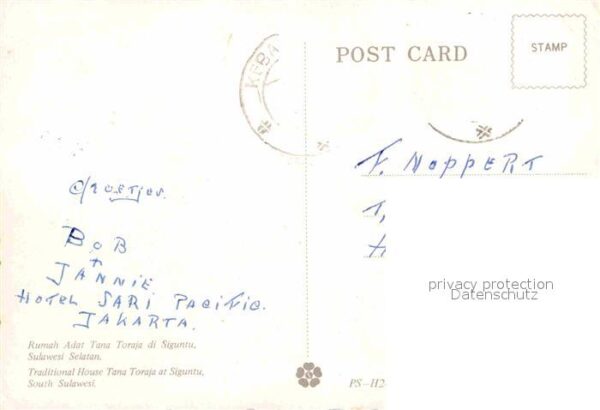 POST CARD
STAMP
KEBA
Groetjes.
BOB
+
JANNIE.
HOTEL SARI PACIFIC.
JAKARTA.
F. NOPPERT
privacy protection
Datenschutz
Rumah Adat Tana Toraja di Siguntu,
Sulawesi Selatan.
Traditional House Tana Toraja at Siguntu,
South Sulawesi.
PS-H2